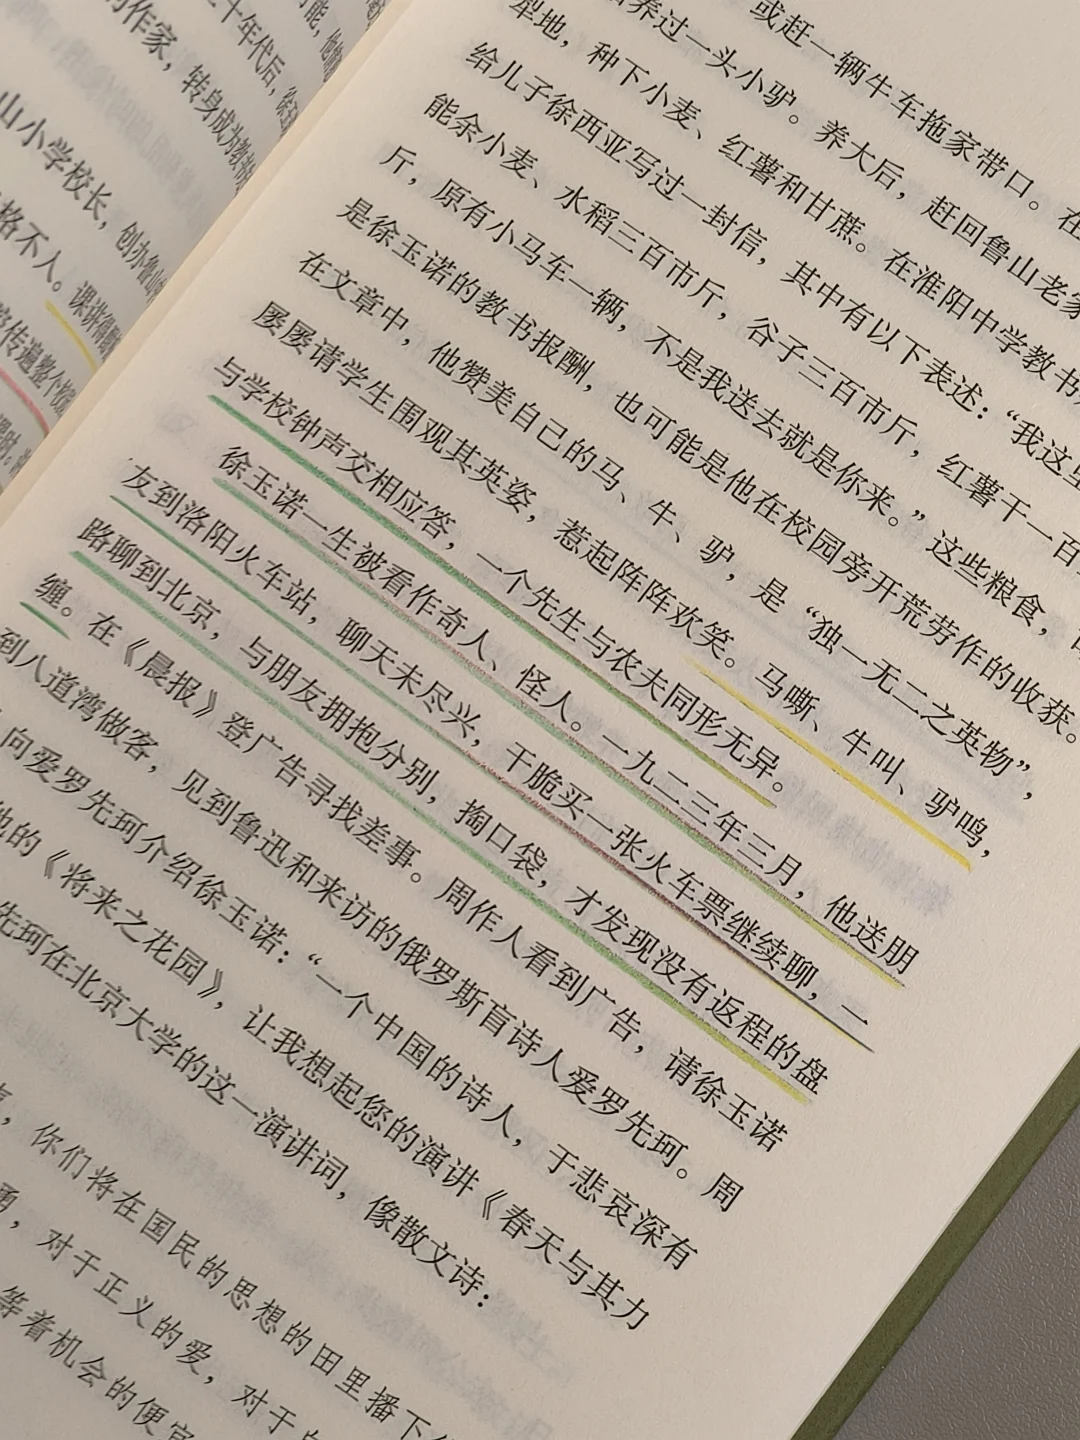 十年代后，徐
的作家，转身成为教
山小学校长，创办鲁山
格不人。课讲得
传遍整个
或赶一辆牛车拖家带口。在
养过一头小驴。养大后，赶回鲁山老家
犁地，种下小麦、红薯和甘蔗。在淮阳中学教书
给儿子徐西亚写过一封信，其中有以下表述：“我这里
能余小麦、水稻三百市斤，谷子三百市斤，红薯干一百
斤，原有小马车一辆，不是我送去就是你来。”这些粮食，
是徐玉诺的教书报酬，也可能是他在校园旁开荒劳作的收获。
在文章中，他赞美自己的马、牛、驴，是“独一无二之英物”，
屡屡请学生围观其英姿，惹起阵阵欢笑。马嘶、牛叫、驴鸣，
与学校钟声交相应答，一个先生与农夫同形无异。
徐玉诺一生被看作奇人、怪人。一九二三年三月，他送朋
友到洛阳火车站，聊天未尽兴，干脆买一张火车票继续聊，一
路聊到北京，与朋友拥抱分别，掏口袋，才发现没有返程的盘
缠。在《晨报》登广告寻找差事。周作人看到广告，请徐玉诺
到八道湾做客，见到鲁迅和来访的俄罗斯盲诗人爱罗先珂。周
向爱罗先珂介绍徐玉诺：“一个中国的诗人，于悲哀深有
他的《将来之花园》，让我想起您的演讲《春天与其力
先珂在北京大学的这一演讲词，像散文诗：
你们将在国民的思想的田里播下
勇，对于正义的爱，对于
等着机会的便